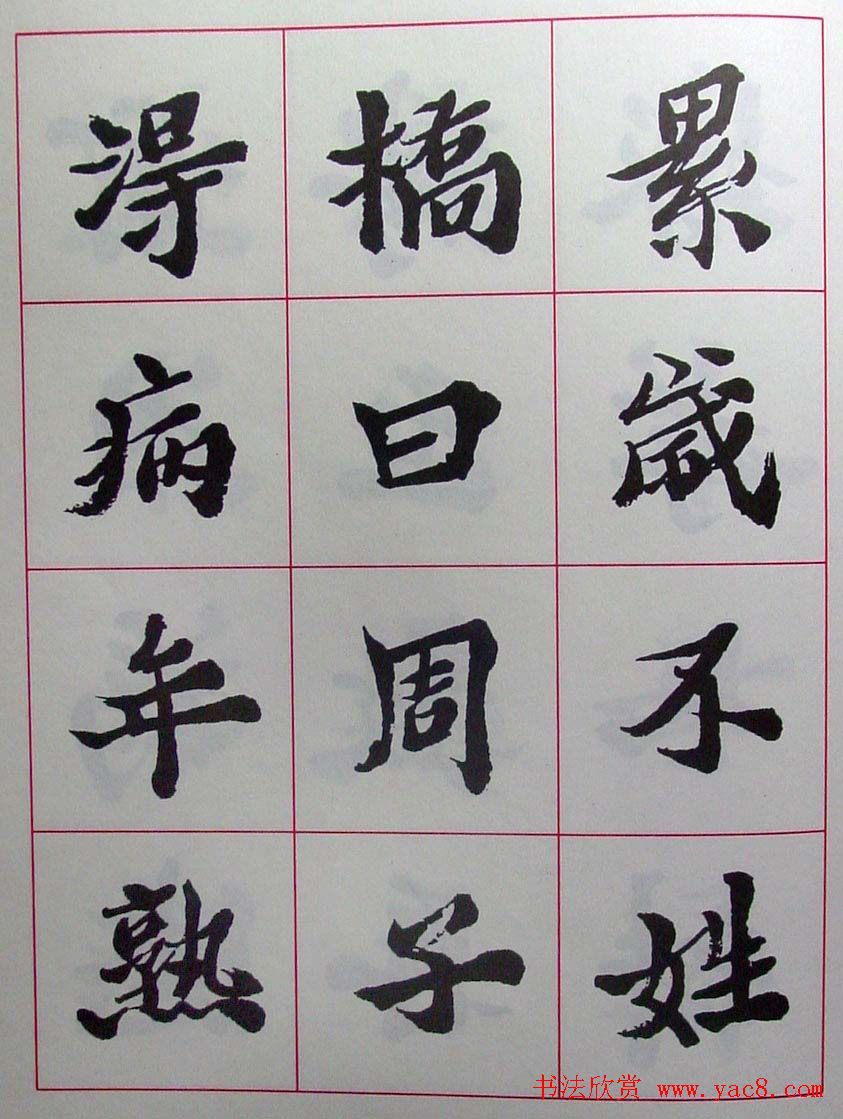 累歲不姓
橋曰周子
得病年熟
书法欣赏 www.yac8.com